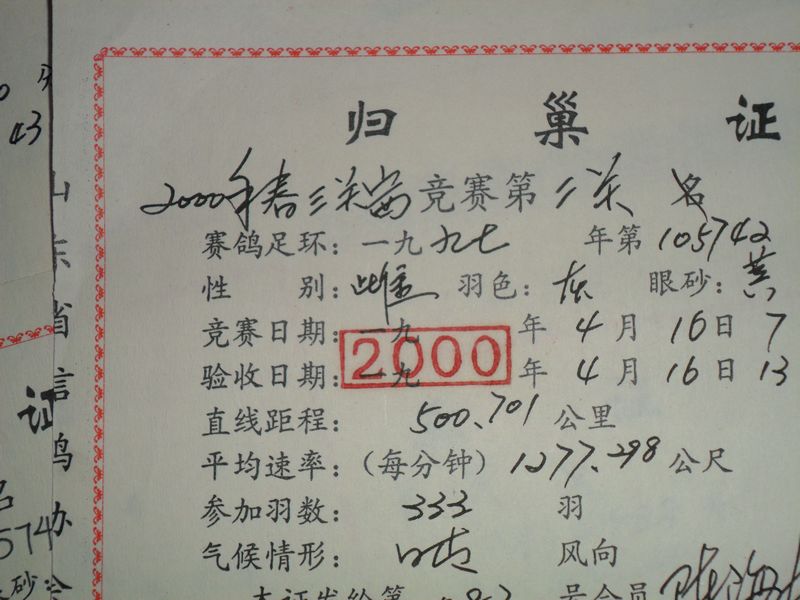 归巢证
2000年春三关赛竞赛第二关名
赛鸽足环：一九九七年第105742
性别：雌 羽色：灰 眼砂：黄
竞赛日期：一九 2000 年4月16日7
验收日期：一九 年4月16日13
直线距程：500.701公里
平均速率：（每分钟）1277.298公尺
参加羽数：333羽
气候情形：晴 风向
本证发给第 号会员
山东省信鸽协会
证
名
574
砂：
43